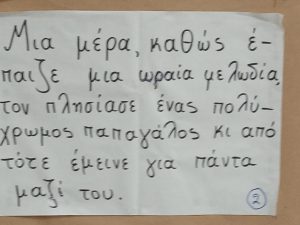 Μια μέρα, καθώς έ-
παιζε μια ωραία μελωδία,
τον πλησίασε ένας πολύ-
χρωμος παπαγάλος κι από
τότε έμεινε για πάντα
μαζί του.
2